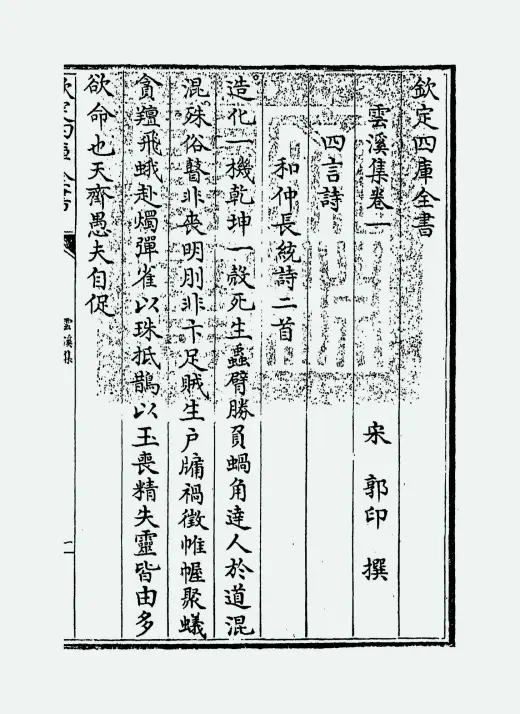 欽定四庫全書
雲溪集卷一
宋 郭印 撰
四言詩
和仲長統詩二首
造化一機乾坤一殻死生蟲臂勝負蝸角達人於道混
混殊俗瞽非喪明刖非卞足賊生户牖禍徵帷幄聚蟻
貪羶飛蛾赴燭彈雀以珠抵鵲以玉喪精失靈皆由多
欲命也天齊愚夫自促
欽定四庫全書
雲溪集
一